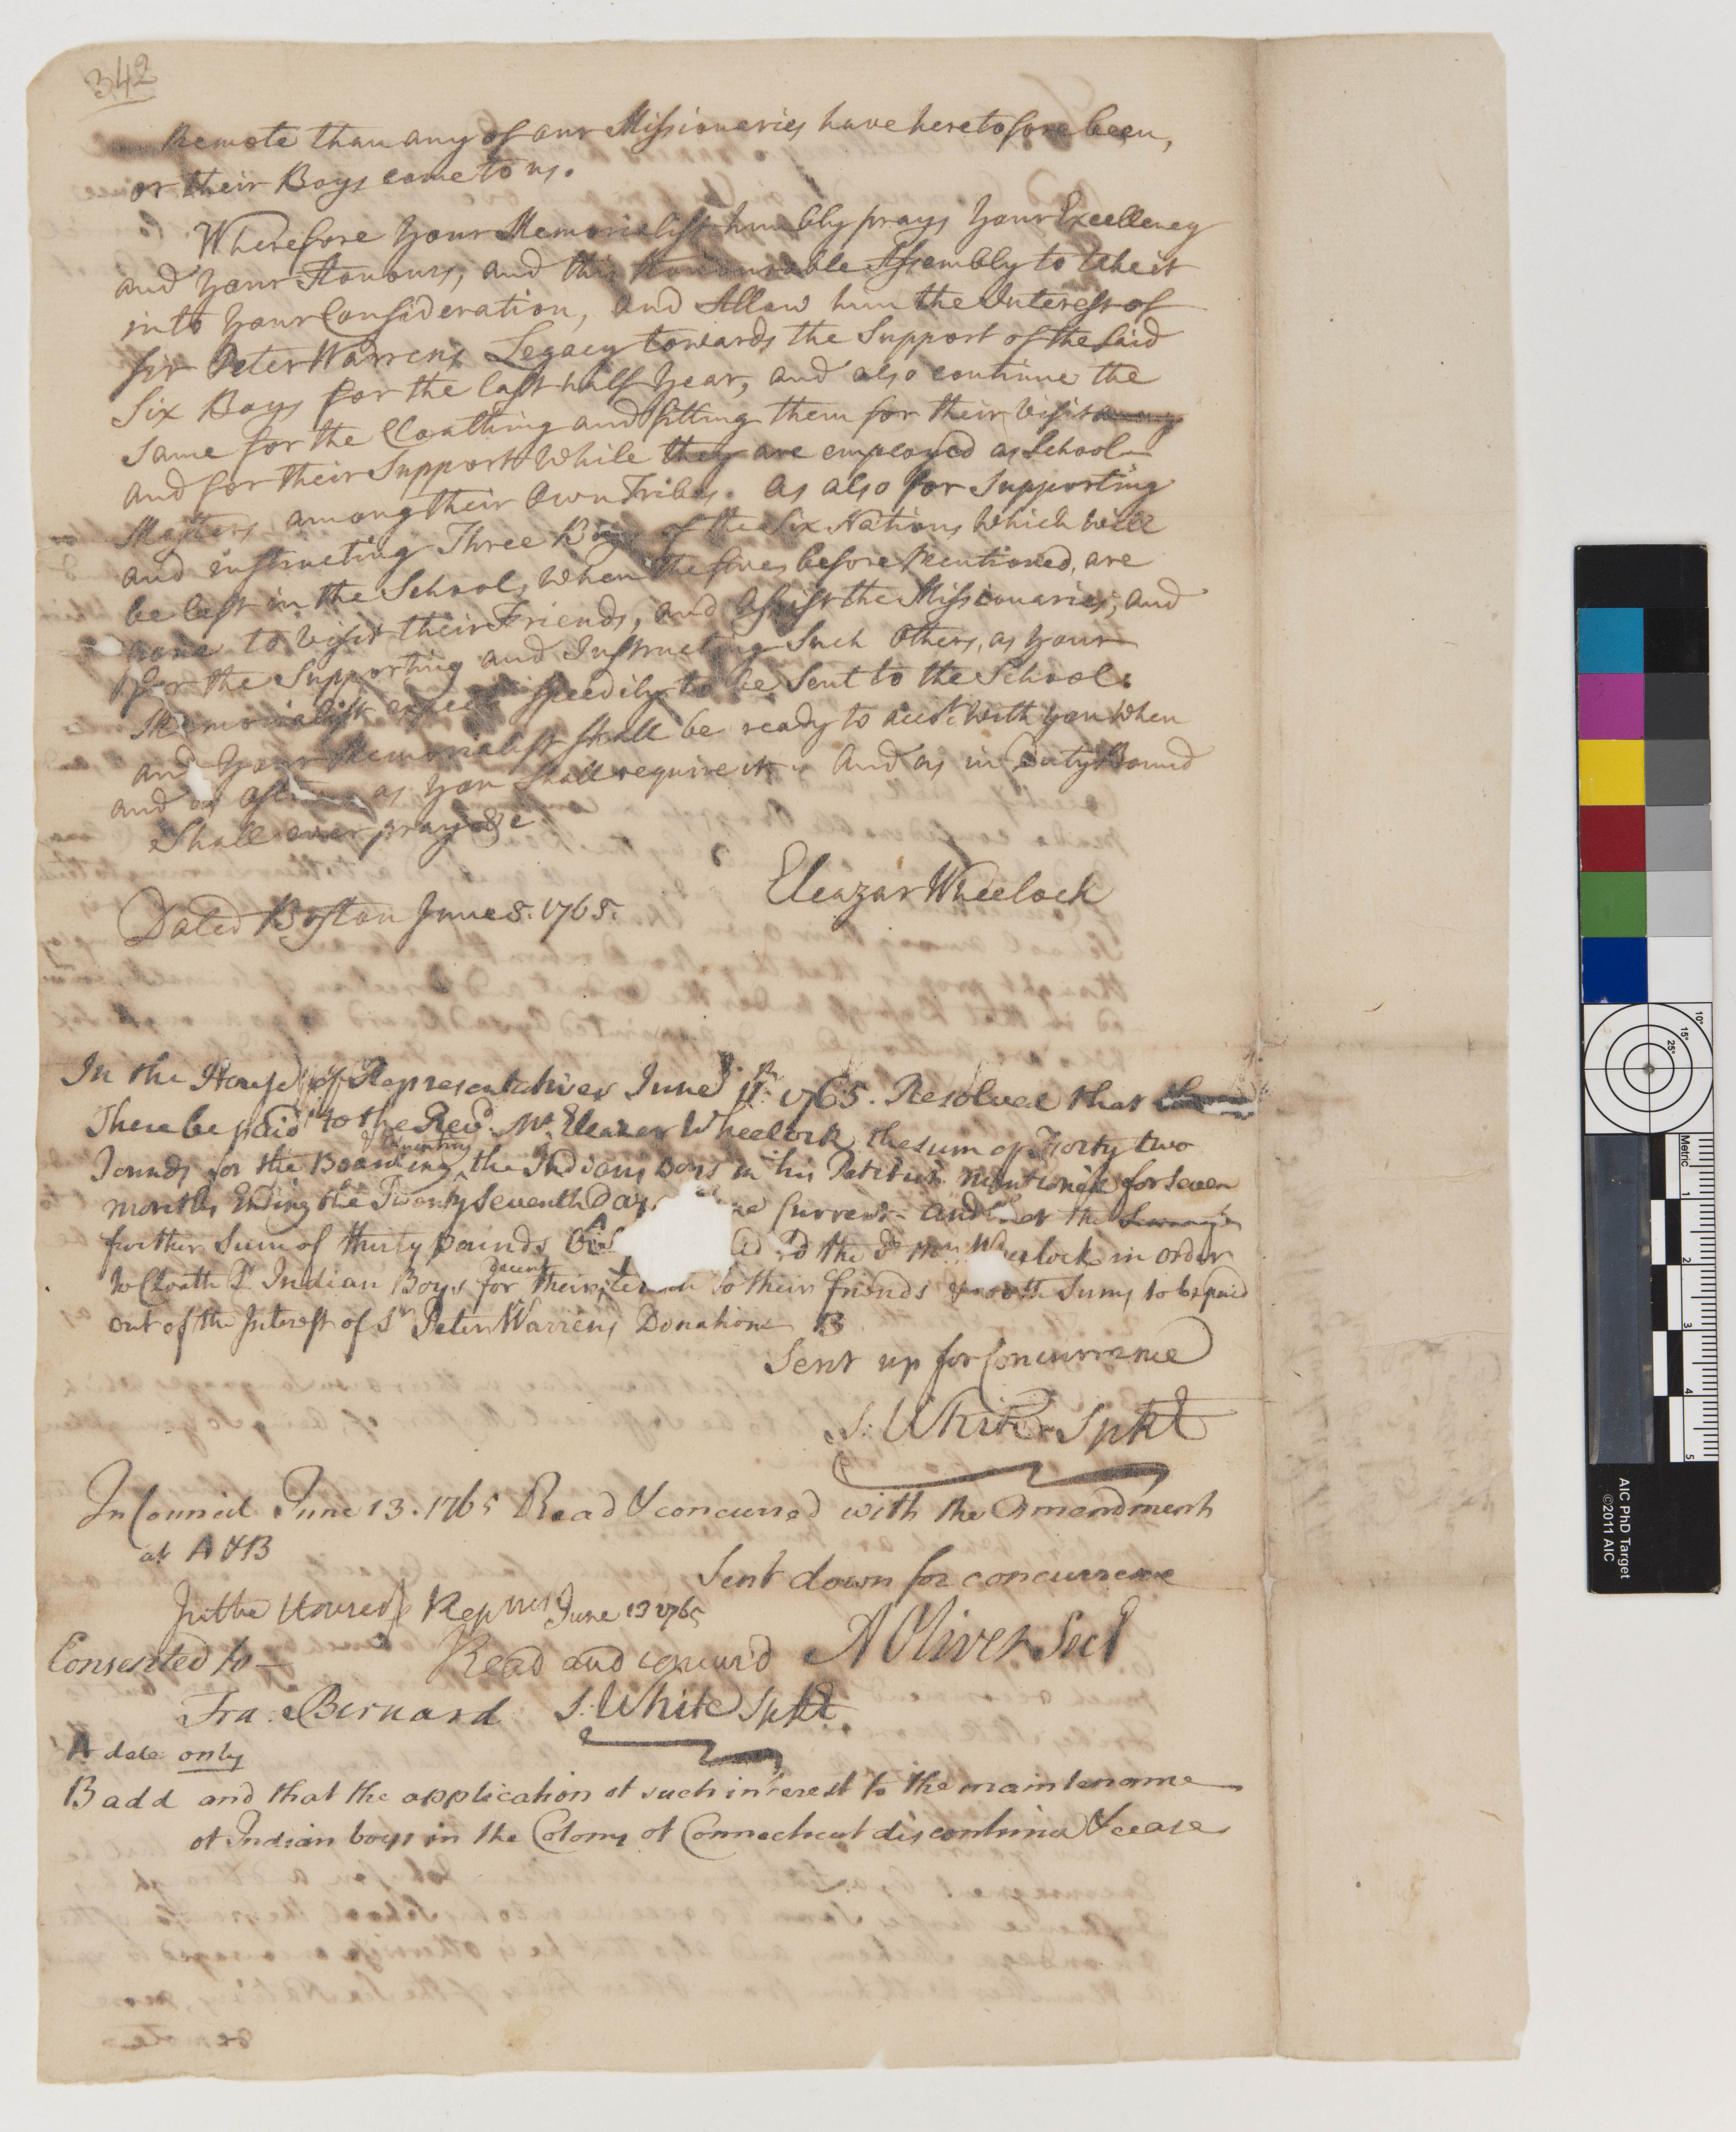 342
Remote than any of our Missionaries have heretofore been,
or their Boys come to us.
Wherefore Your Memorialist humbly prays Your Excellency
and Your Honours, and this Honourable Assembly to take it
into Your Consideration, and Allow him the Interest of
Sir Peter Warrens Legacy towards the Support of the said
Six Boys for the last half Year, and also continue the
same for the Cloathing and fitting them for their Visit among
and for their Support While they are employed as School
Masters among their Own Tribes. as also for Supporting
and instructing Three Boys of the Six Nations which will
be left in the School, when the fives before Mentioned, are
gone to Visit their Friends, and Assist the Missionaries, and
for the Supporting and Instructing Such Others, as Your
Memorialist expects speedily to be Sent to the School:
and Your Memorialist shall be ready to acct. with you when
and as often as you Shall require it. And as in Duty Bound
Shall ever pray &c
Eleazar Wheelock
Dated Boston June 8. 1765.
In the House of Representatives June 11th 1765. Resolved that
There be paid to the Revd. Mr. Eleazer Wheelock the sum of Forty two
pounds for the Boarding & Educating the Indians Boys in his Petition mentioned for Seven
months Ending the Twenty Seventh Day Current and the
further Sum of thirty pounds to the Sd. Mr. Wheelock in order
to Cloath Sd. Indian Boys for their decent return to their friends both Sums to be paid
out of the Interest of Sr. Peter Warrens Donation B
Sent up for Concurrance
S: White Spkr
In Council June 13. 1765 Read & concurred with the Amendment
at A & B
Sent down for concurrence
In the House of Representves June 13 1765
A Oliver Secy
Consented to —
Read and concur'd
Fra: Bernard S: White Spkr.
A dele only
B add and that the application of such interest to the maintenance
of Indian boys in the Colony of Connecticut discontinue & cease
AIC PhD Target
©2011 AIC
Metric
1
2
3
4
5
10°
15°
25°